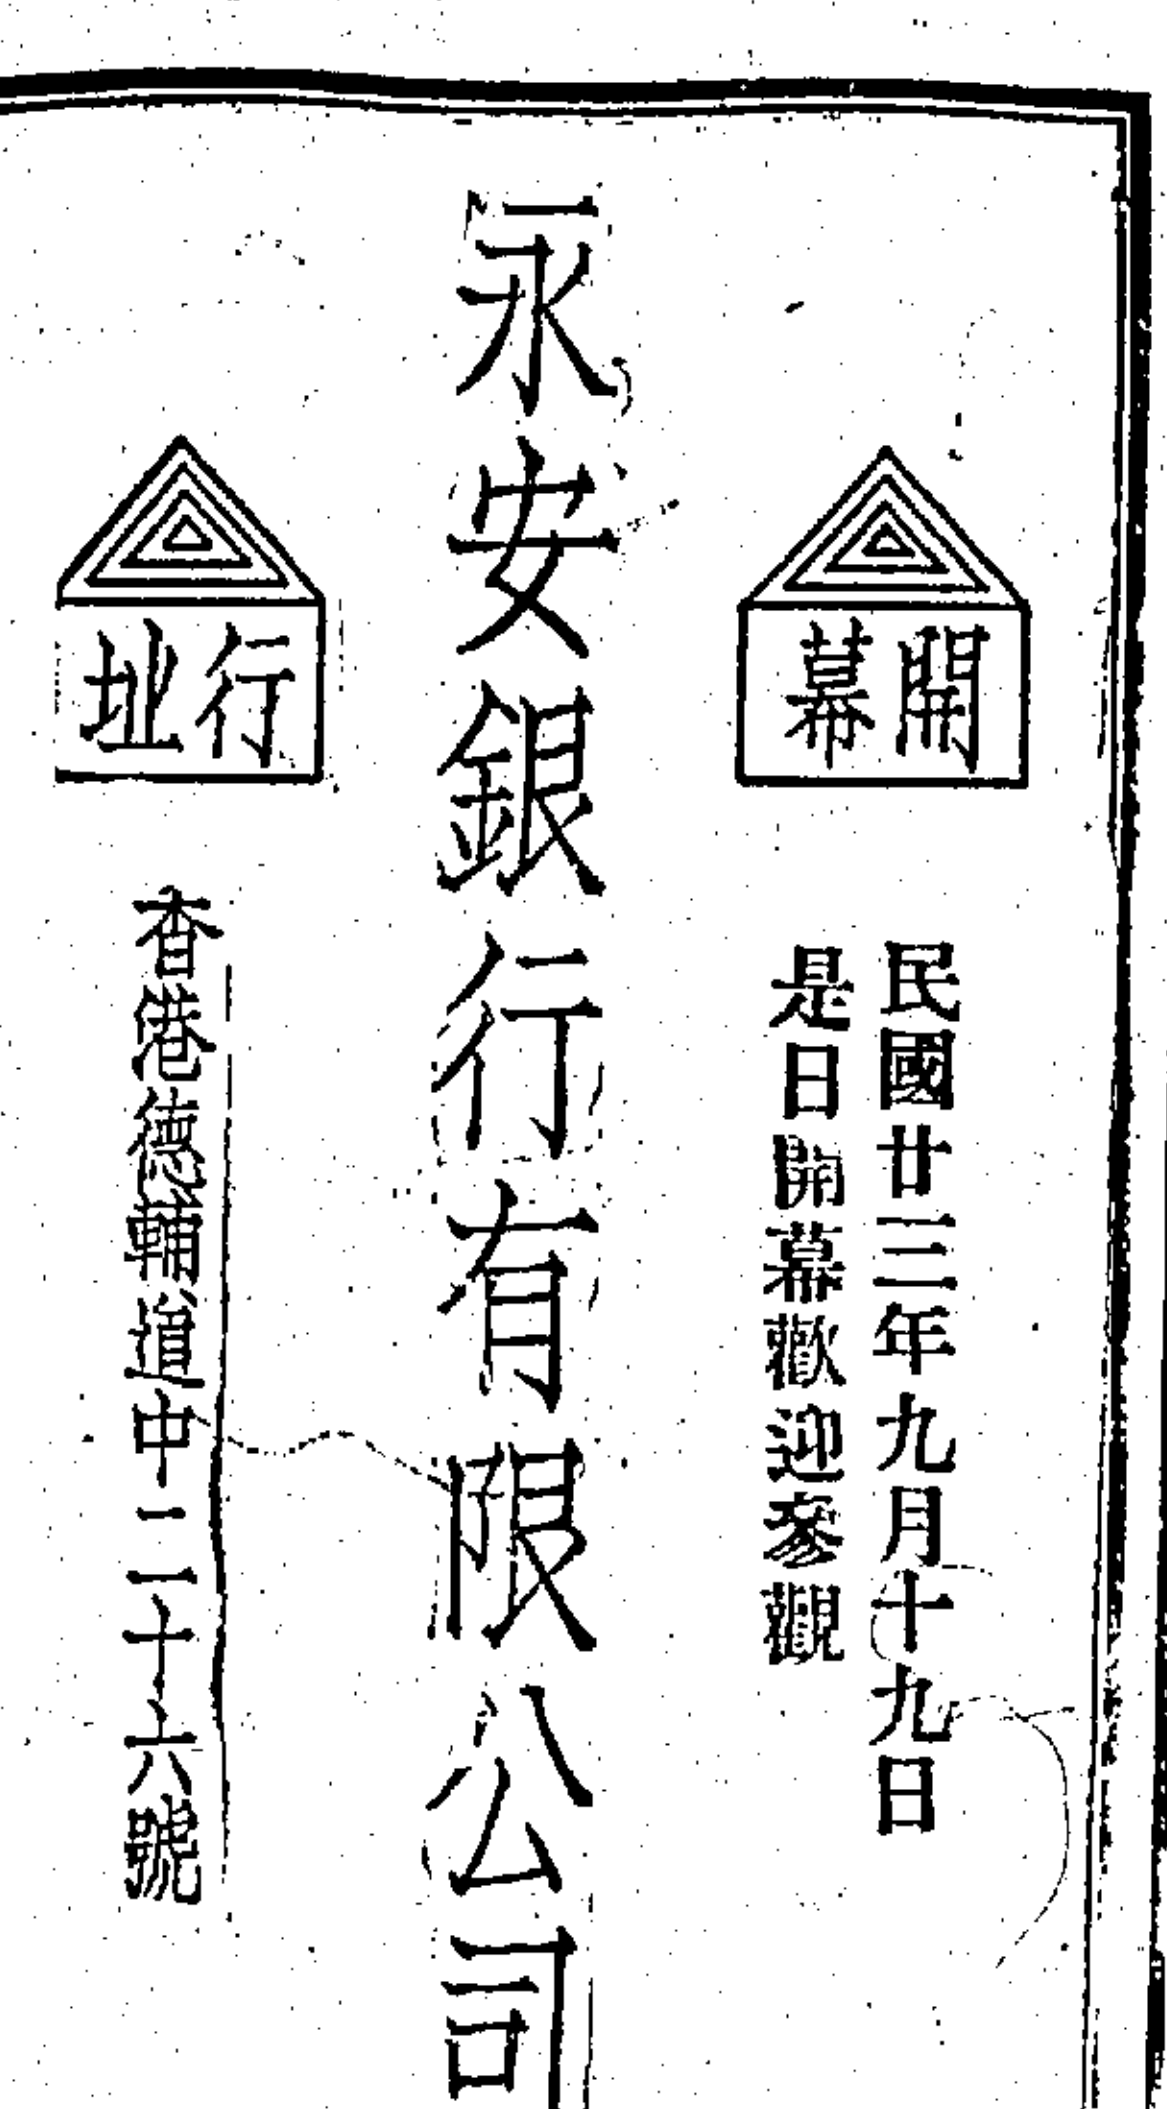 開幕
民國廿三年九月十九日
是日開幕歡迎參觀
永安銀行有限公司
行址
香港德輔道中二十六號